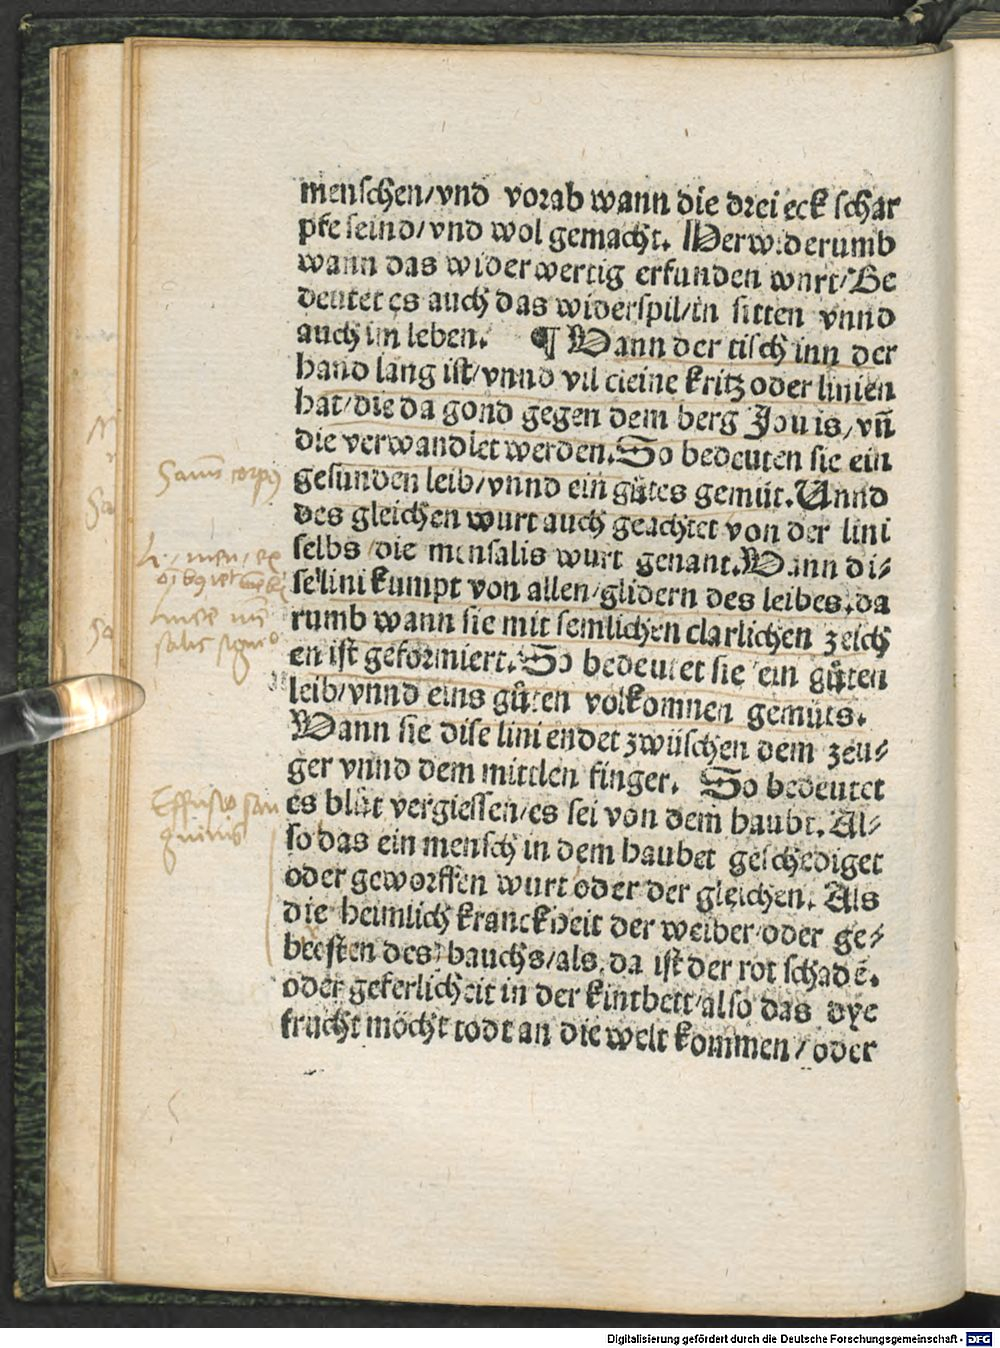 menschen/vnd vorab wann die drei eck schar
pfe seind/vnd wol gemacht. Herwiderumb
wann das widerwertig erfunden wurt/Be
deutet es auch das widerspil/in sitten vnnd
auch im leben. ¶ Wann der tisch inn der
hand lang ist/vnnd vil cleine kritz oder linien
hat/die da gond gegen dem berg Jouis/vñ
die verwandlet werden. So bedeuten sie ein
gesunden leib/vnnd ein gůtes gemüt. Unnd
des gleichen wurt auch geachtet von der lini
selbs/die mensalis wurt genant. Wann di⸗
se lini kumpt von allen/glidern des leibes/da
rumb wann sie mit semlichen clarlichen zeich
en ist geformiert. So bedeutet sie ein gůten
leib/vnnd eins gůten volkomnen gemüts.
Wann sie dise lini endet zwüschen dem zeu⸗
ger vnnd dem mittlen finger. So bedeutet
es blůt vergiessen/es sei von dem haubt. Al⸗
so das ein mensch in dem haubet geschediget
oder geworffen wurt oder der gleichen. Als
die heimlich kranckheit der weiber/oder ge⸗
bresten des bauchs/als da ist der rot schadē.
oder geferlicheit in der kintbett/also das dye
frucht möcht todt an die welt kommen/oder
Sanū corpus
Effusio san
guinis
Digitalisierung gefördert durch die Deutsche Forschungsgemeinschaft - DFG